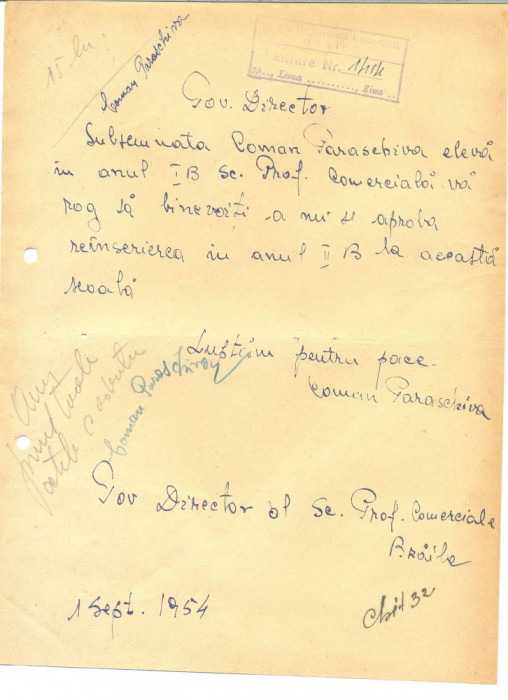 15 lei
Coman Paraschiva
Nr.
Luna Ziua
Tov. Director
Subsemnata Coman Paraschiva elevă
în anul I B Sc. Prof. Comercială vă
rog să binevoiți a mi se aproba
reînscrierea în anul II B la această
școală
Luptăm pentru pace.
Coman Paraschiva
Coman Paraschiva
Am primit toate
actele
Tov Director al Sc. Prof. Comerciale
Brăila
1 Sept. 1954
chit 32